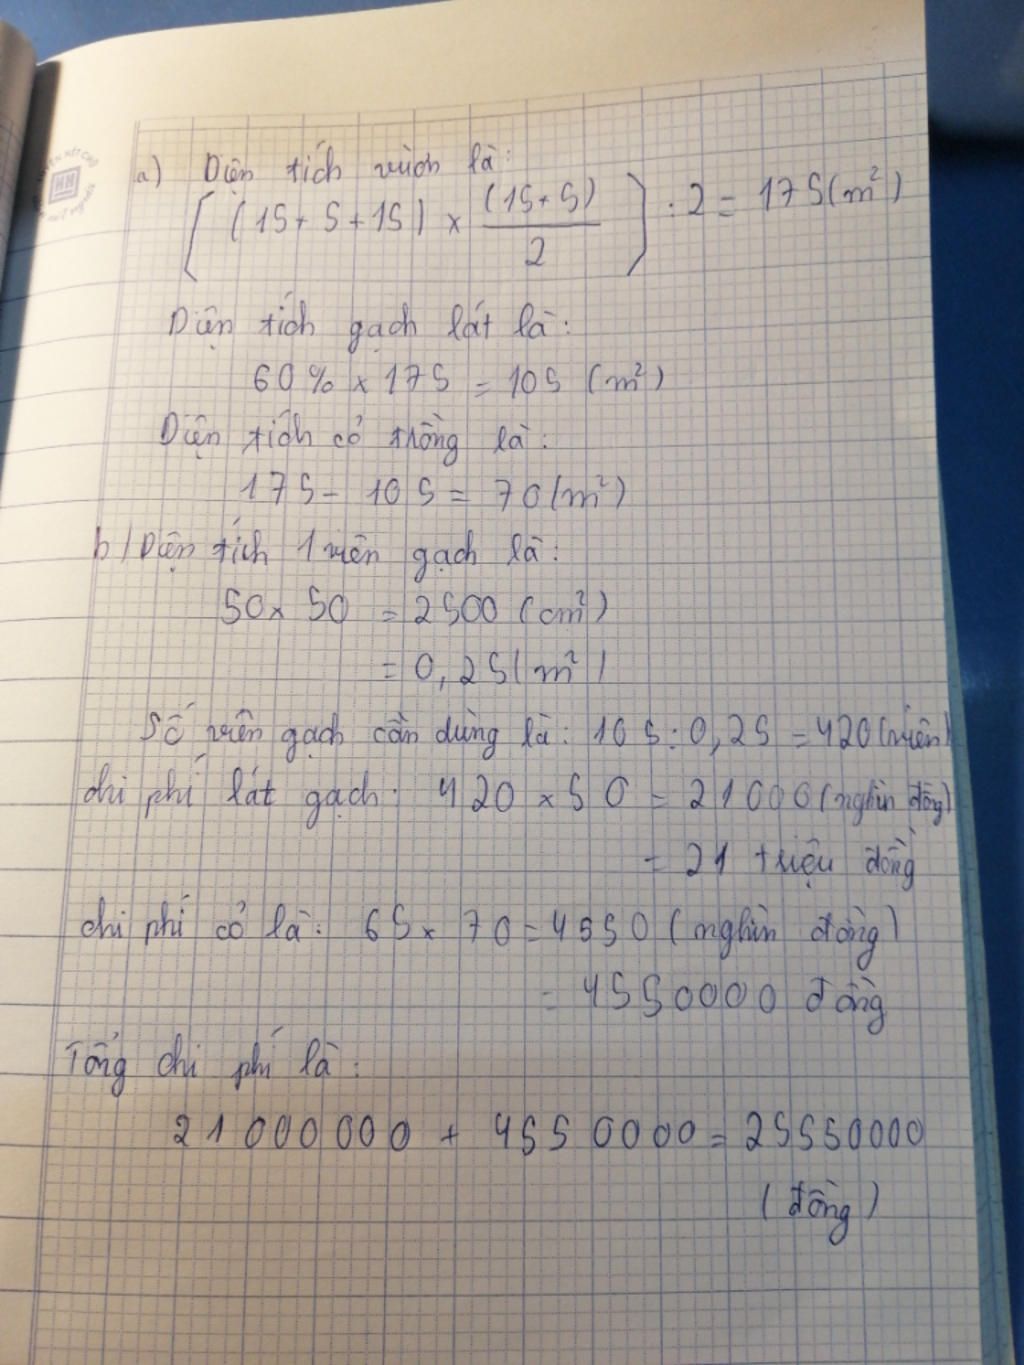 a) Diện tích vườn là:
[(15+5+15) × (15+5)/2] : 2 = 175(m²)
Diện tích gạch lát là:
60% × 175 = 105 (m²)
Diện tích cỏ trồng là:
175 - 105 = 70(m²)
b/ Diện tích 1 viên gạch là:
50 × 50 = 2500 (cm²)
= 0,25(m²)
Số viên gạch cần dùng là: 105:0,25 = 420(viên)
chi phí lát gạch: 420 × 50 = 21000(nghìn đồng)
= 21 triệu đồng
chi phí cỏ là: 65 × 70 = 4550 (nghìn đồng)
= 4550000 đồng
Tổng chi phí là:
21 000 000 + 4550000 = 25550000
(đồng)